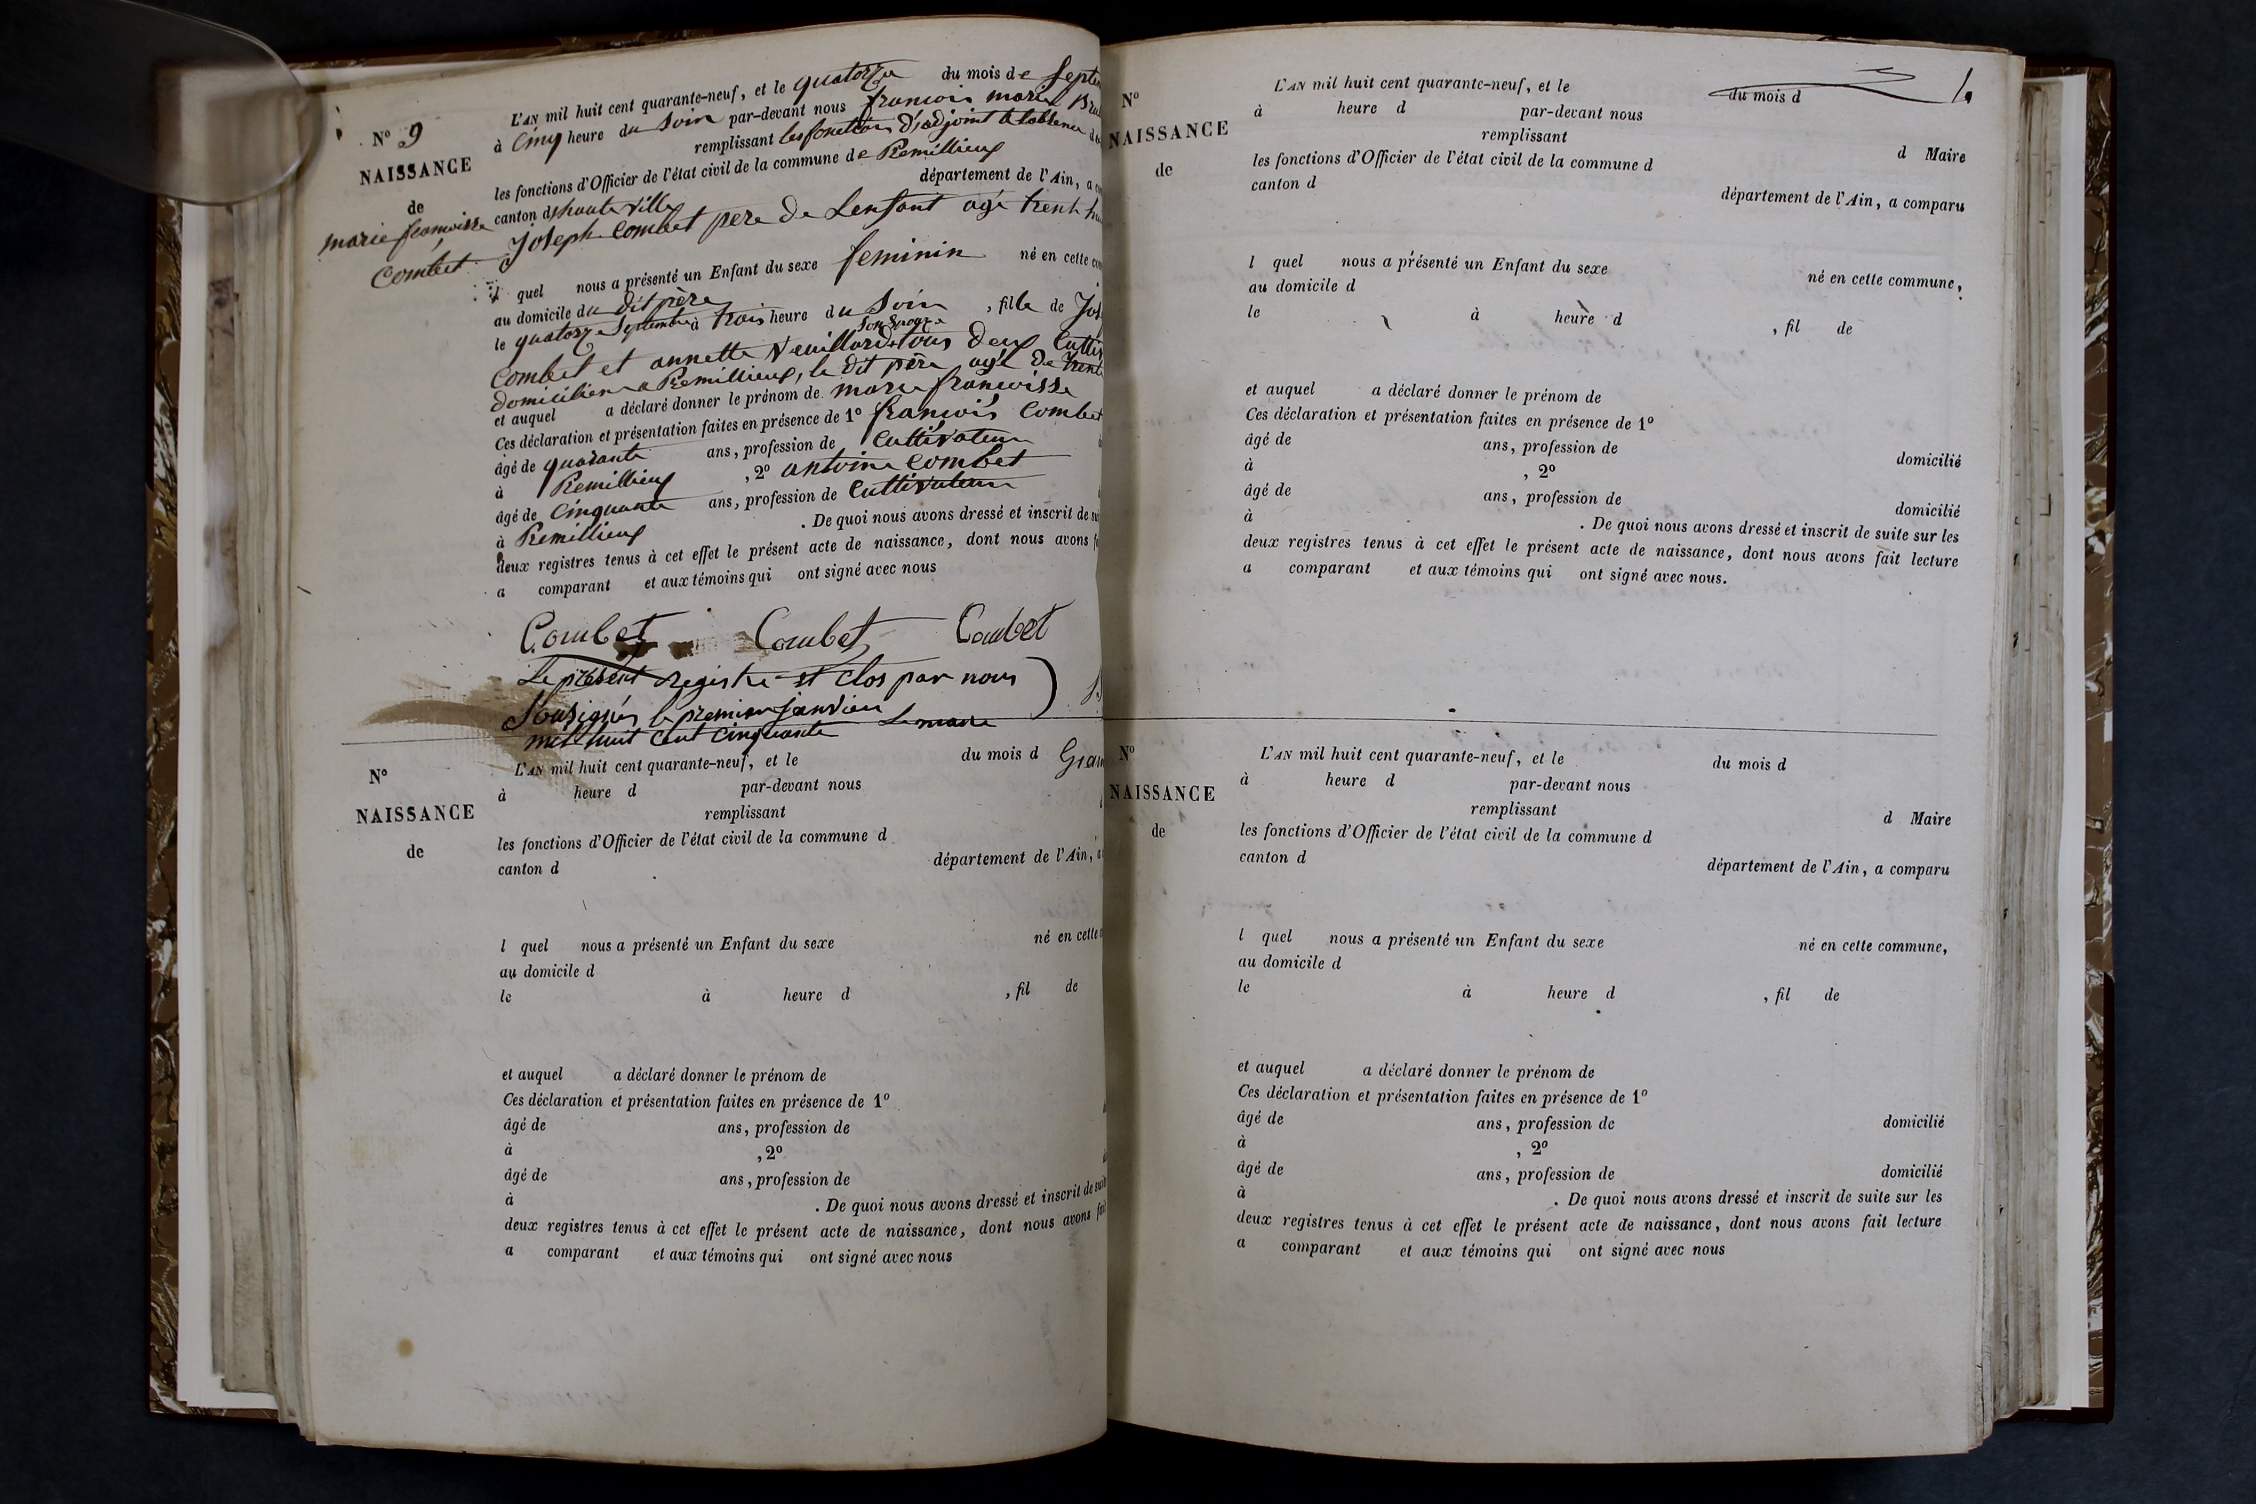 L'AN mil huit cent quarante-neuf, et le quatorze du mois de Septem
à Cinq heure du Soir par-devant nous francois marie
remplissant les fonction d'adjoint
les fonctions d'Officier de l'état civil de la commune de Premillieux
canton d'haute ville département de l'Ain, a
Joseph Combet père De Lenfant agé trente
il quel nous a présenté un Enfant du sexe feminin né en cette
au domicile du Dit père
le quatorze Septembre à trois heure du Soir, fille de
son Epouze
Combet et annette Veuillard tous Deux
Domicilier a Premillieux, le Dit père agé De trente
et auquel a déclaré donner le prénom de marie françoisse
Ces déclaration et présentation faites en présence de 1º françois Combet
âgé de quarante ans, profession de Cultivateur
à Premillieux, 2º antoine Combet
âgé de Cinquante ans, profession de Cultivateur
à Premillieux. De quoi nous avons dressé et inscrit de
deux registres tenus à cet effet le présent acte de naissance, dont nous avons
a comparant et aux témoins qui ont signé avec nous
Nº 9
NAISSANCE
de
marie francoisse
Combet
Combet Combet Combet
Le présent registre est Clos par nous
Sousignés le premier janvier
mil huit Cent Cinquante Le maire
Nº
NAISSANCE
de
L'AN mil huit cent quarante-neuf, et le du mois d
à heure d par-devant nous
remplissant
les fonctions d'Officier de l'état civil de la commune d
canton d département de l'Ain,
l quel nous a présenté un Enfant du sexe né en cette
au domicile d
le à heure d , fil de
et auquel a déclaré donner le prénom de
Ces déclaration et présentation faites en présence de 1º
âgé de ans, profession de
à , 2º
âgé de ans, profession de
à . De quoi nous avons dressé et inscrit de suite
deux registres tenus à cet effet le présent acte de naissance, dont nous avons fait
a comparant et aux témoins qui ont signé avec nous
Nº
NAISSANCE
de
L'AN mil huit cent quarante-neuf, et le du mois d
à heure d par-devant nous
remplissant d Maire
les fonctions d'Officier de l'état civil de la commune d
canton d département de l'Ain, a comparu
l quel nous a présenté un Enfant du sexe né en cette commune,
au domicile d
le à heure d , fil de
et auquel a déclaré donner le prénom de
Ces déclaration et présentation faites en présence de 1º
âgé de ans, profession de domicilié
à , 2º
âgé de ans, profession de domicilié
à . De quoi nous avons dressé et inscrit de suite sur les
deux registres tenus à cet effet le présent acte de naissance, dont nous avons fait lecture
a comparant et aux témoins qui ont signé avec nous.
Nº
NAISSANCE
de
L'AN mil huit cent quarante-neuf, et le du mois d
à heure d par-devant nous
remplissant d Maire
les fonctions d'Officier de l'état civil de la commune d
canton d département de l'Ain, a comparu
l quel nous a présenté un Enfant du sexe né en cette commune,
au domicile d
le à heure d , fil de
et auquel a déclaré donner le prénom de
Ces déclaration et présentation faites en présence de 1º
âgé de ans, profession de domicilié
à , 2º
âgé de ans, profession de domicilié
à . De quoi nous avons dressé et inscrit de suite sur les
deux registres tenus à cet effet le présent acte de naissance, dont nous avons fait lecture
a comparant et aux témoins qui ont signé avec nous